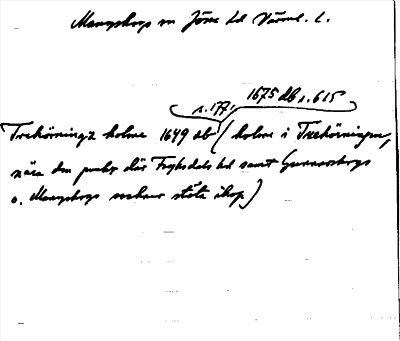 Mangskogs sn Jösse hd Värml. l.
s. 177, 1675 db s. 615
Trekörningz holme 1649 db (holme i Trekörningen,
nära den punkt där Fryksdals hd samt Gunnarskogs
o. Mangskogs socknar stöta ihop)